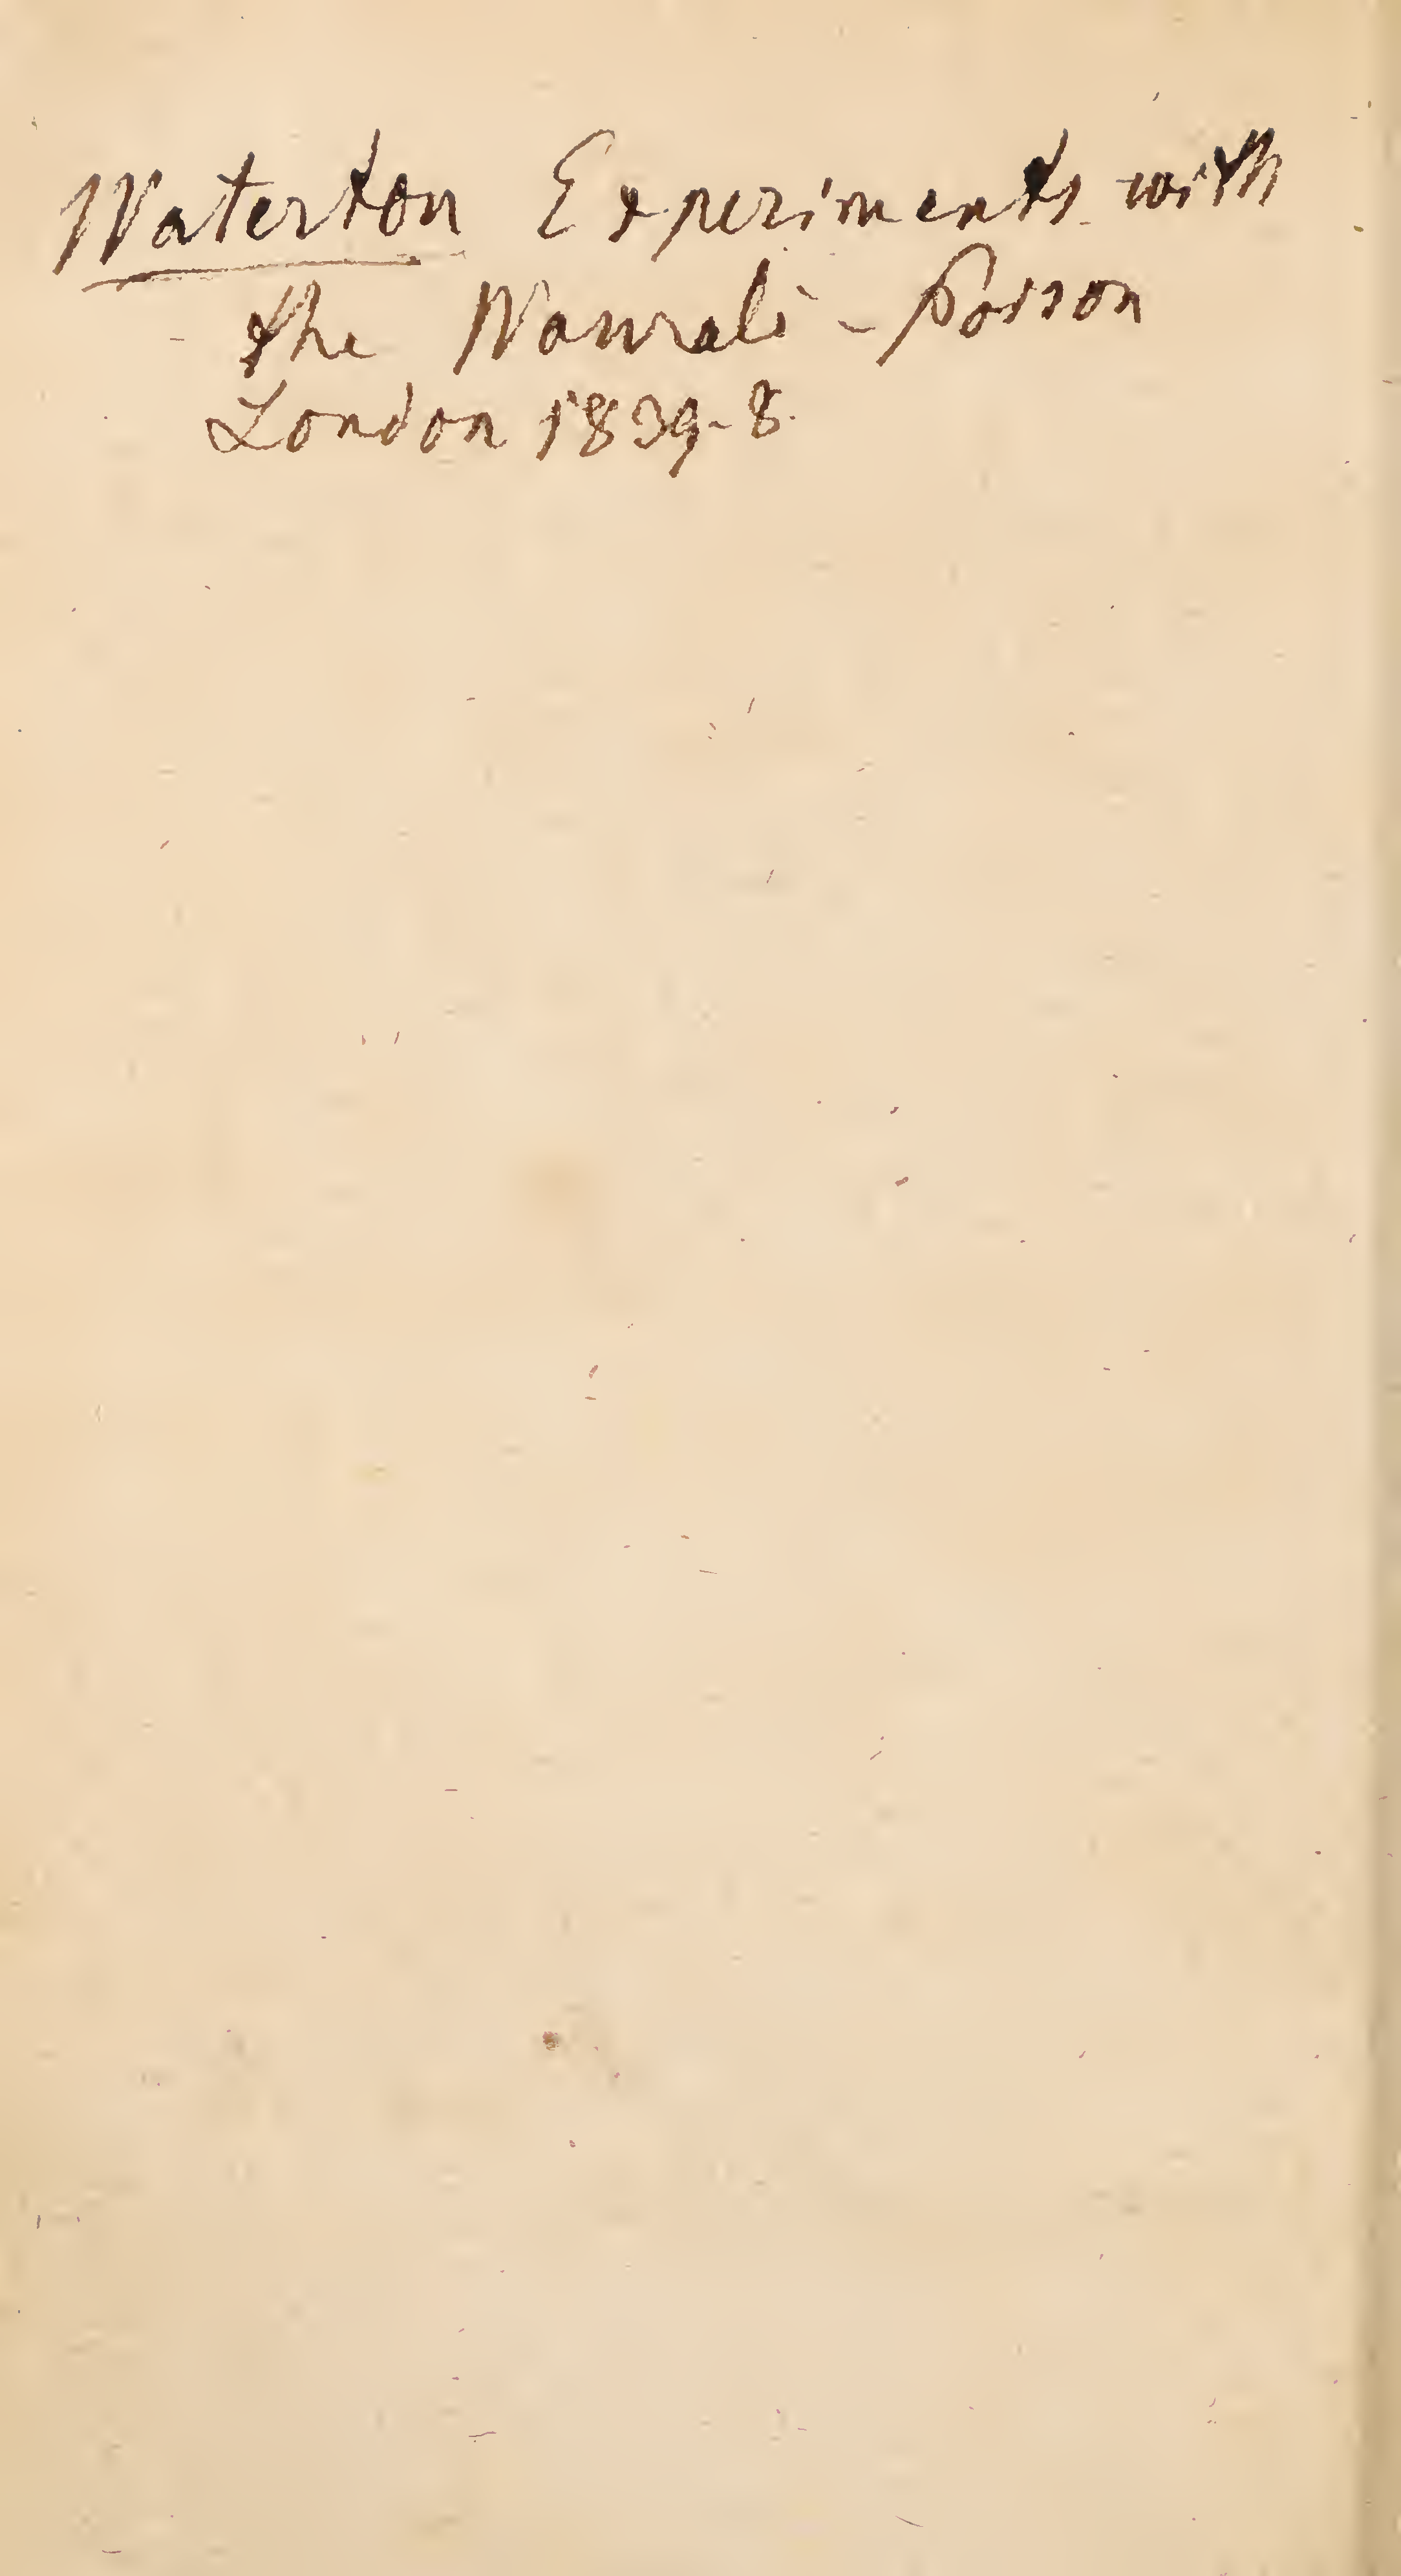 Waterton Experiments with
the Wourali - Poison
London 1839-8.